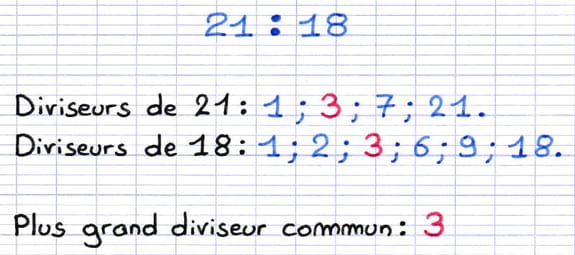 21 : 18
Diviseurs de 21 : 1 ; 3 ; 7 ; 21.
Diviseurs de 18 : 1 ; 2 ; 3 ; 6 ; 9 ; 18.
Plus grand diviseur commun : 3